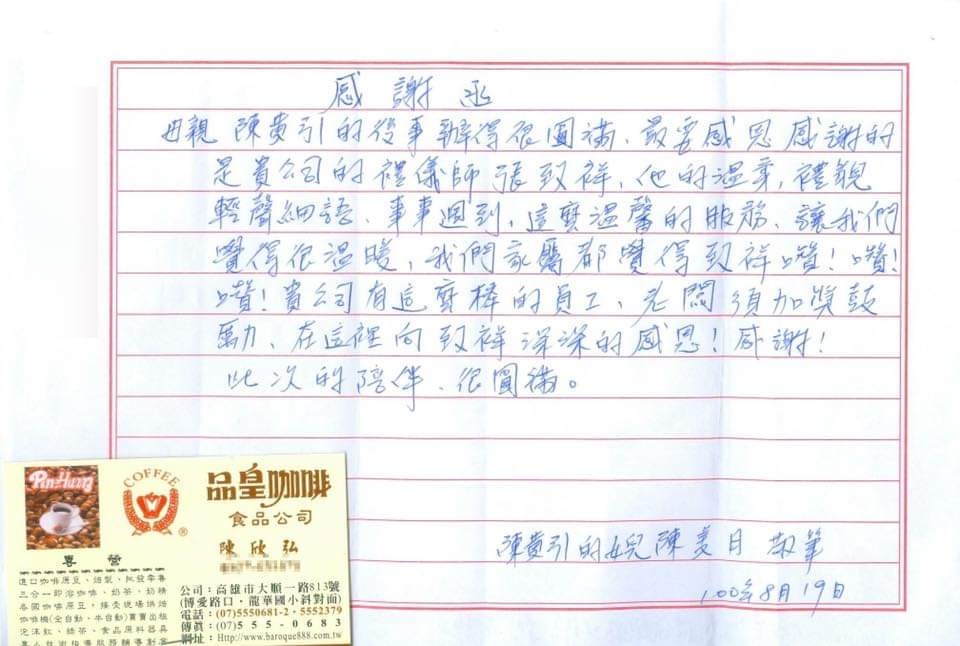 感謝函
母親 陳黃引的後事辦得很圓滿、最要感恩感謝的
是貴公司的禮儀師張致祥、他的溫柔,禮貌
輕聲細語、事事週到,這麼溫馨的服務、讓我們
覺得很溫暖,我們家屬都覺得致祥讚!讚!
讚!貴公司有這麼棒的員工、老闆須加獎鼓
勵、在這裡向致祥深深的感恩!感謝!
此次的陪伴、很圓滿。
陳黃引的女兒陳美月 敬筆
100年8月19日
Pin Huang
COFFEE
品皇咖啡
食品公司
陳欣弘
專營
進口咖啡原豆、焙製、批發零售
三合一即溶咖啡、奶茶、奶精
各國咖啡原豆,接受現場烘焙
咖啡機(全自動、半自動)買賣出租
泡沫紅、綠茶、食品原料器具
公司:高雄市大順一路813號
(博愛路口,龍華國小斜對面)
電話:(07)5550681-2.5552379
傳真:(07)555-0683
網址:Http://www.baroque888.com.tw